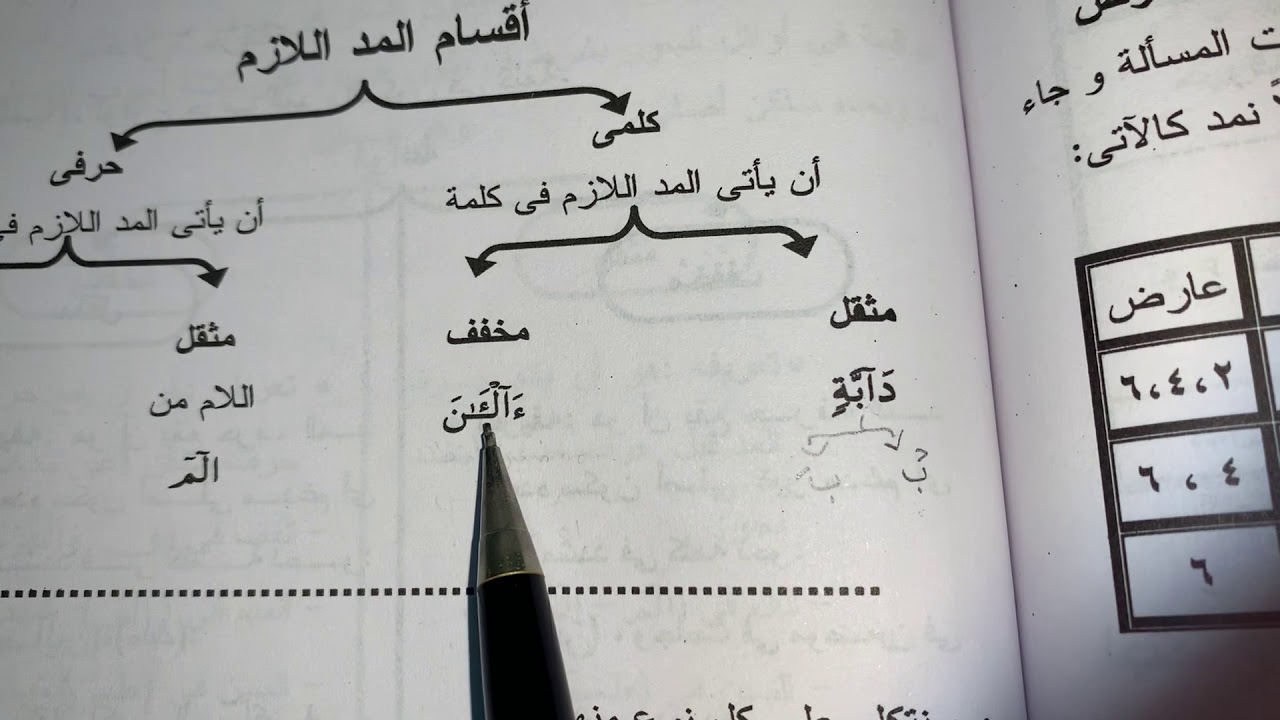 أقسام المد اللازم
كلمى
حرفى
أن يأتى المد اللازم فى كلمة
أن يأتى المد اللازم
مثقل
مخفف
مثقل
دَآبَّةٍ
ءَآلْـَٰٔنَ
اللام من
الٓمٓ
بْ
بَ
المسألة و جاء
نمد كالآتى:
عارض
٦،٤،٢
٤ ، ٦
٦